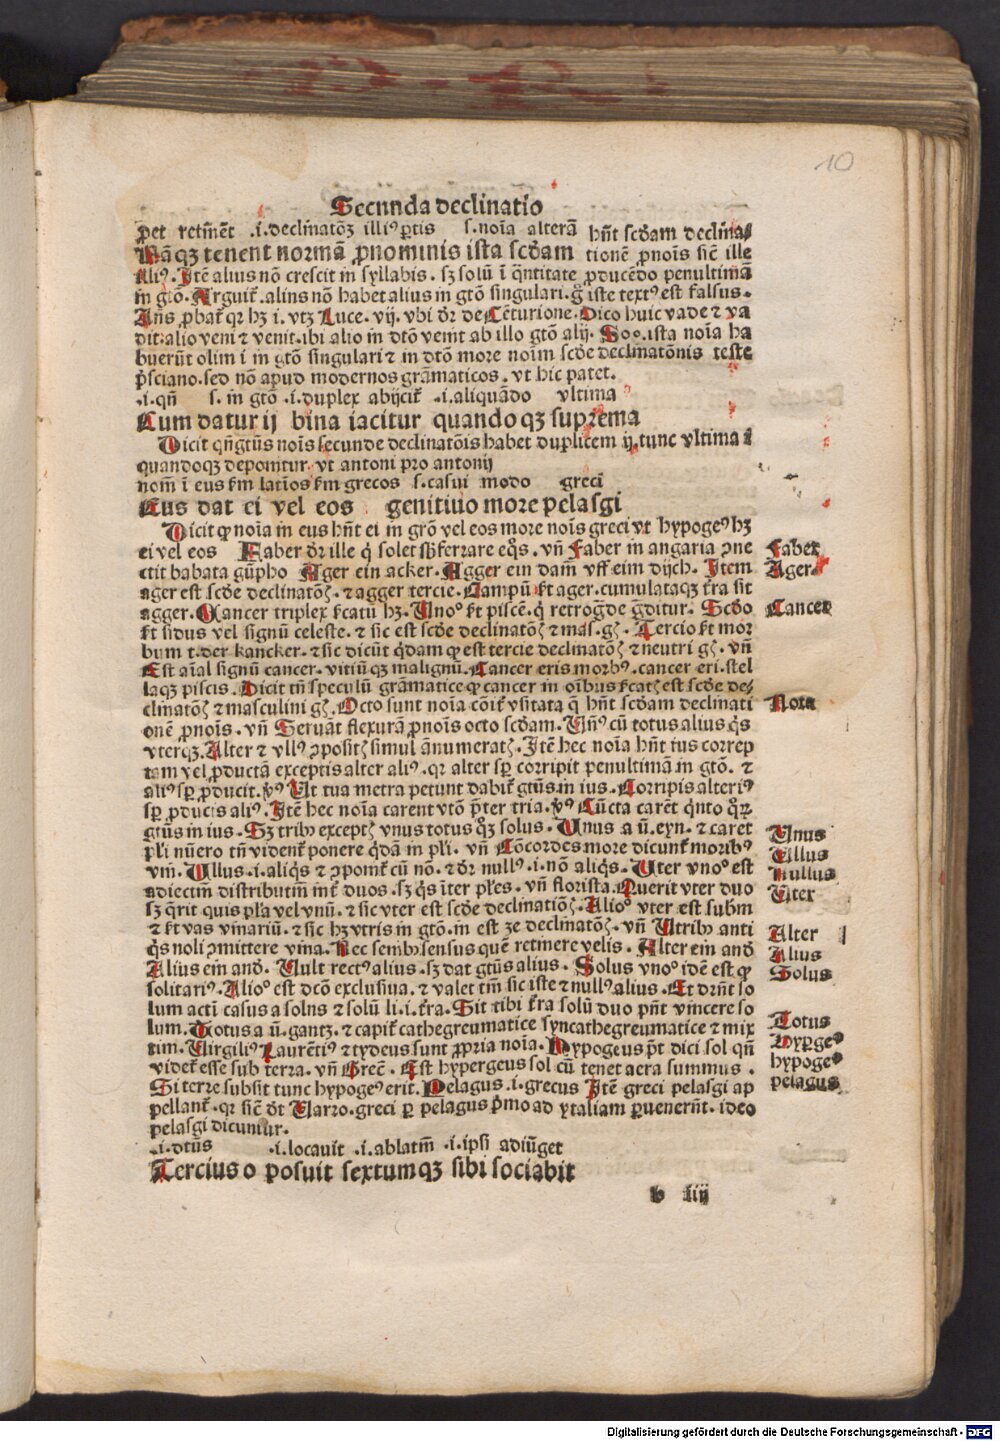 10
Secunda declinatio
ꝑet retinēt .i. declinatōꝫ illiꝰ ꝑtis s. noīa alterā hn̄t scḋam declina⸗
Nāqꝫ tenent normā ꝓnominis ista scḋam tionē ꝓnoīs sic̄ ille
aliꝰ. Itē alius nō crescit in syllabis. sꝫ solū ī q̄ntitate ꝓducēdo penultimā
in gtō. Arguit̄. alius nō habet alius in gtō singulari. g̊ iste textꝰ est falsus.
An̄s ꝓbat̄ qꝛ hꝫ i. vtꝫ Luce. vij. vbi dr̄ de Cēturione. Dico huic vade ⁊ va
dit: alio veni ⁊ venit. ibi alio in dtō venit ab illo gtō alij. Soo. ista noīa ha
buerūt olim i in gtō singulari ⁊ in dtō more noīm scḋe declinatōnis teste
p̄sciano. sed nō apud modernos grāmaticos. vt hic patet.
.i. qn̄ s. in gtō .i. duplex abijcit̄ .i. aliquādo vltima
Cum datur ij bina iacitur quandoqꝫ suprema
Dicit qn̄gtūs noīs secunde declinatōis habet duplicem ij. tunc vltima i
quandoqꝫ deponitur. vt antoni pro antonij
nom̄ ī eus k̄m latīos k̄m grecos s. casui modo greci
Eus dat ei vel eos genitiuo more pelasgi
Dicit ꝙ noīa in eus hn̄t ei in grō vel eos more noīs greci vt hypogeꝰ hꝫ
ei vel eos Faber dr̄ ille q̇ solet sb̄ferrare eq̊s. vn̄ Faber in angaria ꝯne
ctit babata gūpho Ager ein acker. Agger ein dam̄ vff eim dijch. Item
ager est scḋe declinatōꝫ. ⁊ agger tercie. Campū k̄t ager. cumulataqꝫ t̄ra sit
agger. Cancer triplex k̄catū hꝫ. Unoº k̄t piscē. q̇ retrog̊de g̊ditur. Scḋo
k̄t sidus vel signū celeste. ⁊ sic est scḋe declinatōꝫ ⁊ mas. gꝫ. Tercio k̄t mor
bum t. der kancker. ⁊ sic dicūt q̇dam ꝙ est tercie declinatōꝫ ⁊ neutri gꝫ. vn̄
Est aīal signū cancer. vitiū qꝫ malignū. Cancer eris morbꝰ. cancer eri. stel
laqꝫ piscis. Dicit tn̄ speculū grāmatice ꝙ cancer in oībus k̄catꝫ est scḋe de⸗
clinatōꝫ ⁊ masculini gꝫ. Octo sunt noīa cōit̄ vsitata q̄ hn̄t scḋam declinati
onē ꝓnoīs. vn̄ Seruāt flexurā ꝓnoīs octo scḋam. Unꝰ cū totus alius q̇s
vterqꝫ. Alter ⁊ vllꝰ ꝯpositꝫ simul ānumeratꝫ. Itē hec noīa hn̄t ius correp
tam vel ꝓductā exceptis alter aliꝰ. qꝛ alter sꝑ corripit penultimā in gtō. ⁊
aliꝰ sꝑ ꝓducit. v̄ꝰ Ut tua metra petunt dabit̄ gtūs. in ius. Corripis alteriꝰ
sꝑ ꝓducis aliꝰ. Itē hec noīa carent vtō p̄ter tria. v̄ꝰ Cūcta carēt q̇nto q̊ꝝ
gtūs in ius. Sꝫ tribꝰ exceptꝫ vnus totus q̊ꝫ solus. Unus a ū. eyn. ⁊ caret
pl̄i nūero tn̄ vident̄ ponere q̇dā in pl̄i. vn̄ Cōcordes more dicunt̄ moribꝰ
vni. Ullus .i. aliq̇s ⁊ ꝯponit̄ cū nō. ⁊ dr̄ nullꝰ .i. nō aliq̇s. Uter vnoº est
adiectiū distributiū int̄ duos. sꝫ q̇s īter pl̄es. vn̄ florista. Querit vter duo
sꝫ q̄rit quis pl̄a vel vnū. ⁊ sic vter est scḋe declinatiōꝫ. Alioº vter est subm̄
⁊ k̄t vas vinariū. ⁊ sic hꝫ vtris in gtō. in est ꝫe declinatōꝫ. vn̄ Utribꝰ anti
q̇s noli ꝯmittere vina. Nec sembꝰ sensus quē retinere velis. Alter ein anḋ
Alius ein anḋ. Uult rectꝰ alius. sꝫ dat gtūs alius. Solus vnoº idē est ꝙ
solitariꝰ. Alioº est dcō exclusiua. ⁊ valet tm̄ sic iste ⁊ nullꝰ alius. Et drn̄t so
lum acti casus a solus ⁊ solū li .i. t̄ra. Sit tibi t̄ra solū duo pn̄t vincere so
lum. Totus a ū. gantꝫ. ⁊ capit̄ cathegreumatice syncathegreumatice ⁊ mix
tim. Uirgiliꝰ Laurētiꝰ ⁊ tydeus sunt ꝓpria noīa. Hypogeus p̄t dici sol qn̄
videt̄ esse sub terra. vn̄ Grec̄. Est hypergeus sol cū tenet aera summus.
Si terre subsit tunc hypogeꝰ erit. Pelagus .i. grecus Itē greci pelasgi ap
pellant̄. qꝛ sic̄ dt̄ Uarro. greci ꝑ pelagus p̄mo ad ytaliam ꝑuenerūt. ideo
pelasgi dicuntur.
.i. dtūs .i. locauit .i. ablatm̄ .i. ipsi adiūget
Tercius o posuit sextumqꝫ sibi sociabit
b iij
Faber
Ager
Cancer
Nota
Unus
Ullus
Nullus
Uter
Alter
Alius
Solus
Totus
Hyꝑgeꝰ
hypogeꝰ
pelagus
Digitalisierung gefördert durch die Deutsche Forschungsgemeinschaft - DFG